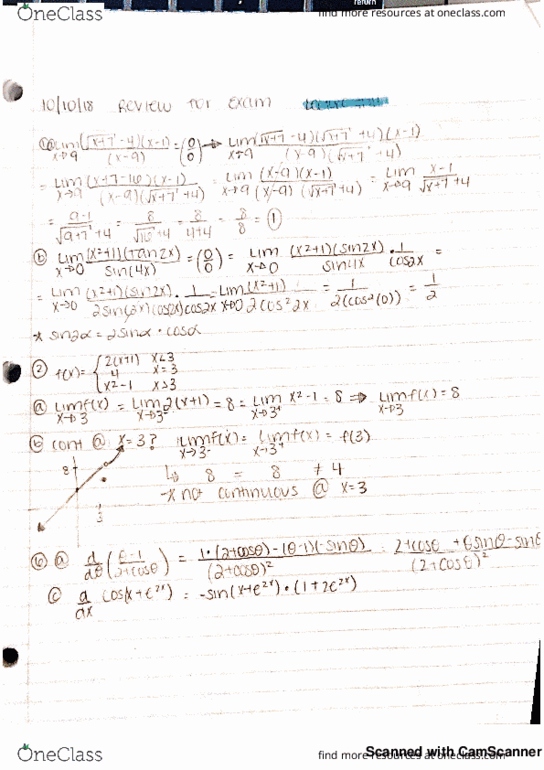 OneClass
find more resources at oneclass.com
return
10/10/18 REVIEW FOR EXAM
① ⓐ lim x→9 (√x+7 - 4)(x-1) / (x-9) = (0/0) → lim x→9 (√x+7 - 4)(√x+7 + 4)(x-1) / (x-9)(√x+7 + 4)
= lim x→9 (x+7-16)(x-1) / (x-9)(√x+7 + 4) = lim x→9 (x-9)(x-1) / (x-9)(√x+7 + 4) = lim x→9 x-1 / √x+7 + 4
= 9-1 / √9+7 + 4 = 8 / √16 + 4 = 8 / 4+4 = 8/8 = ①
ⓑ lim x→0 (x²+1)(tan2x) / sin(4x) = (0/0) = lim x→0 (x²+1)(sin2x) / sin4x · 1 / cos2x =
= lim x→0 (x²+1)(sin2x) / 2sin(2x)cos(2x) · 1 / cos2x = lim x→0 (x²+1) / 2cos²2x = 1 / 2(cos²(0)) = 1/2
* sin2α = 2sinα · cosα
② f(x) = { 2(x+1) x<3
4 x=3
x²-1 x>3
ⓐ lim x→3 f(x) = lim x→3⁻ 2(x+1) = 8 = lim x→3⁺ x²-1 = 8 ⇒ lim x→3 f(x) = 8
ⓑ cont @ x=3? lim x→3⁻ f(x) = lim x→3⁺ f(x) = f(3)
8 ↳ 8 = 8 ≠ 4
-x not continuous @ x=3
3
⑥ ⓐ d/dθ (θ-1 / 2+cosθ) = 1·(2+cosθ)-(θ-1)(-sinθ) / (2+cosθ)² = 2+cosθ+θsinθ-sinθ / (2+cosθ)²
ⓒ d/dx cos(x+e²ˣ) = -sin(x+e²ˣ)·(1+2e²ˣ)
Scanned with CamScanner
OneClass
find more resources at oneclass.com